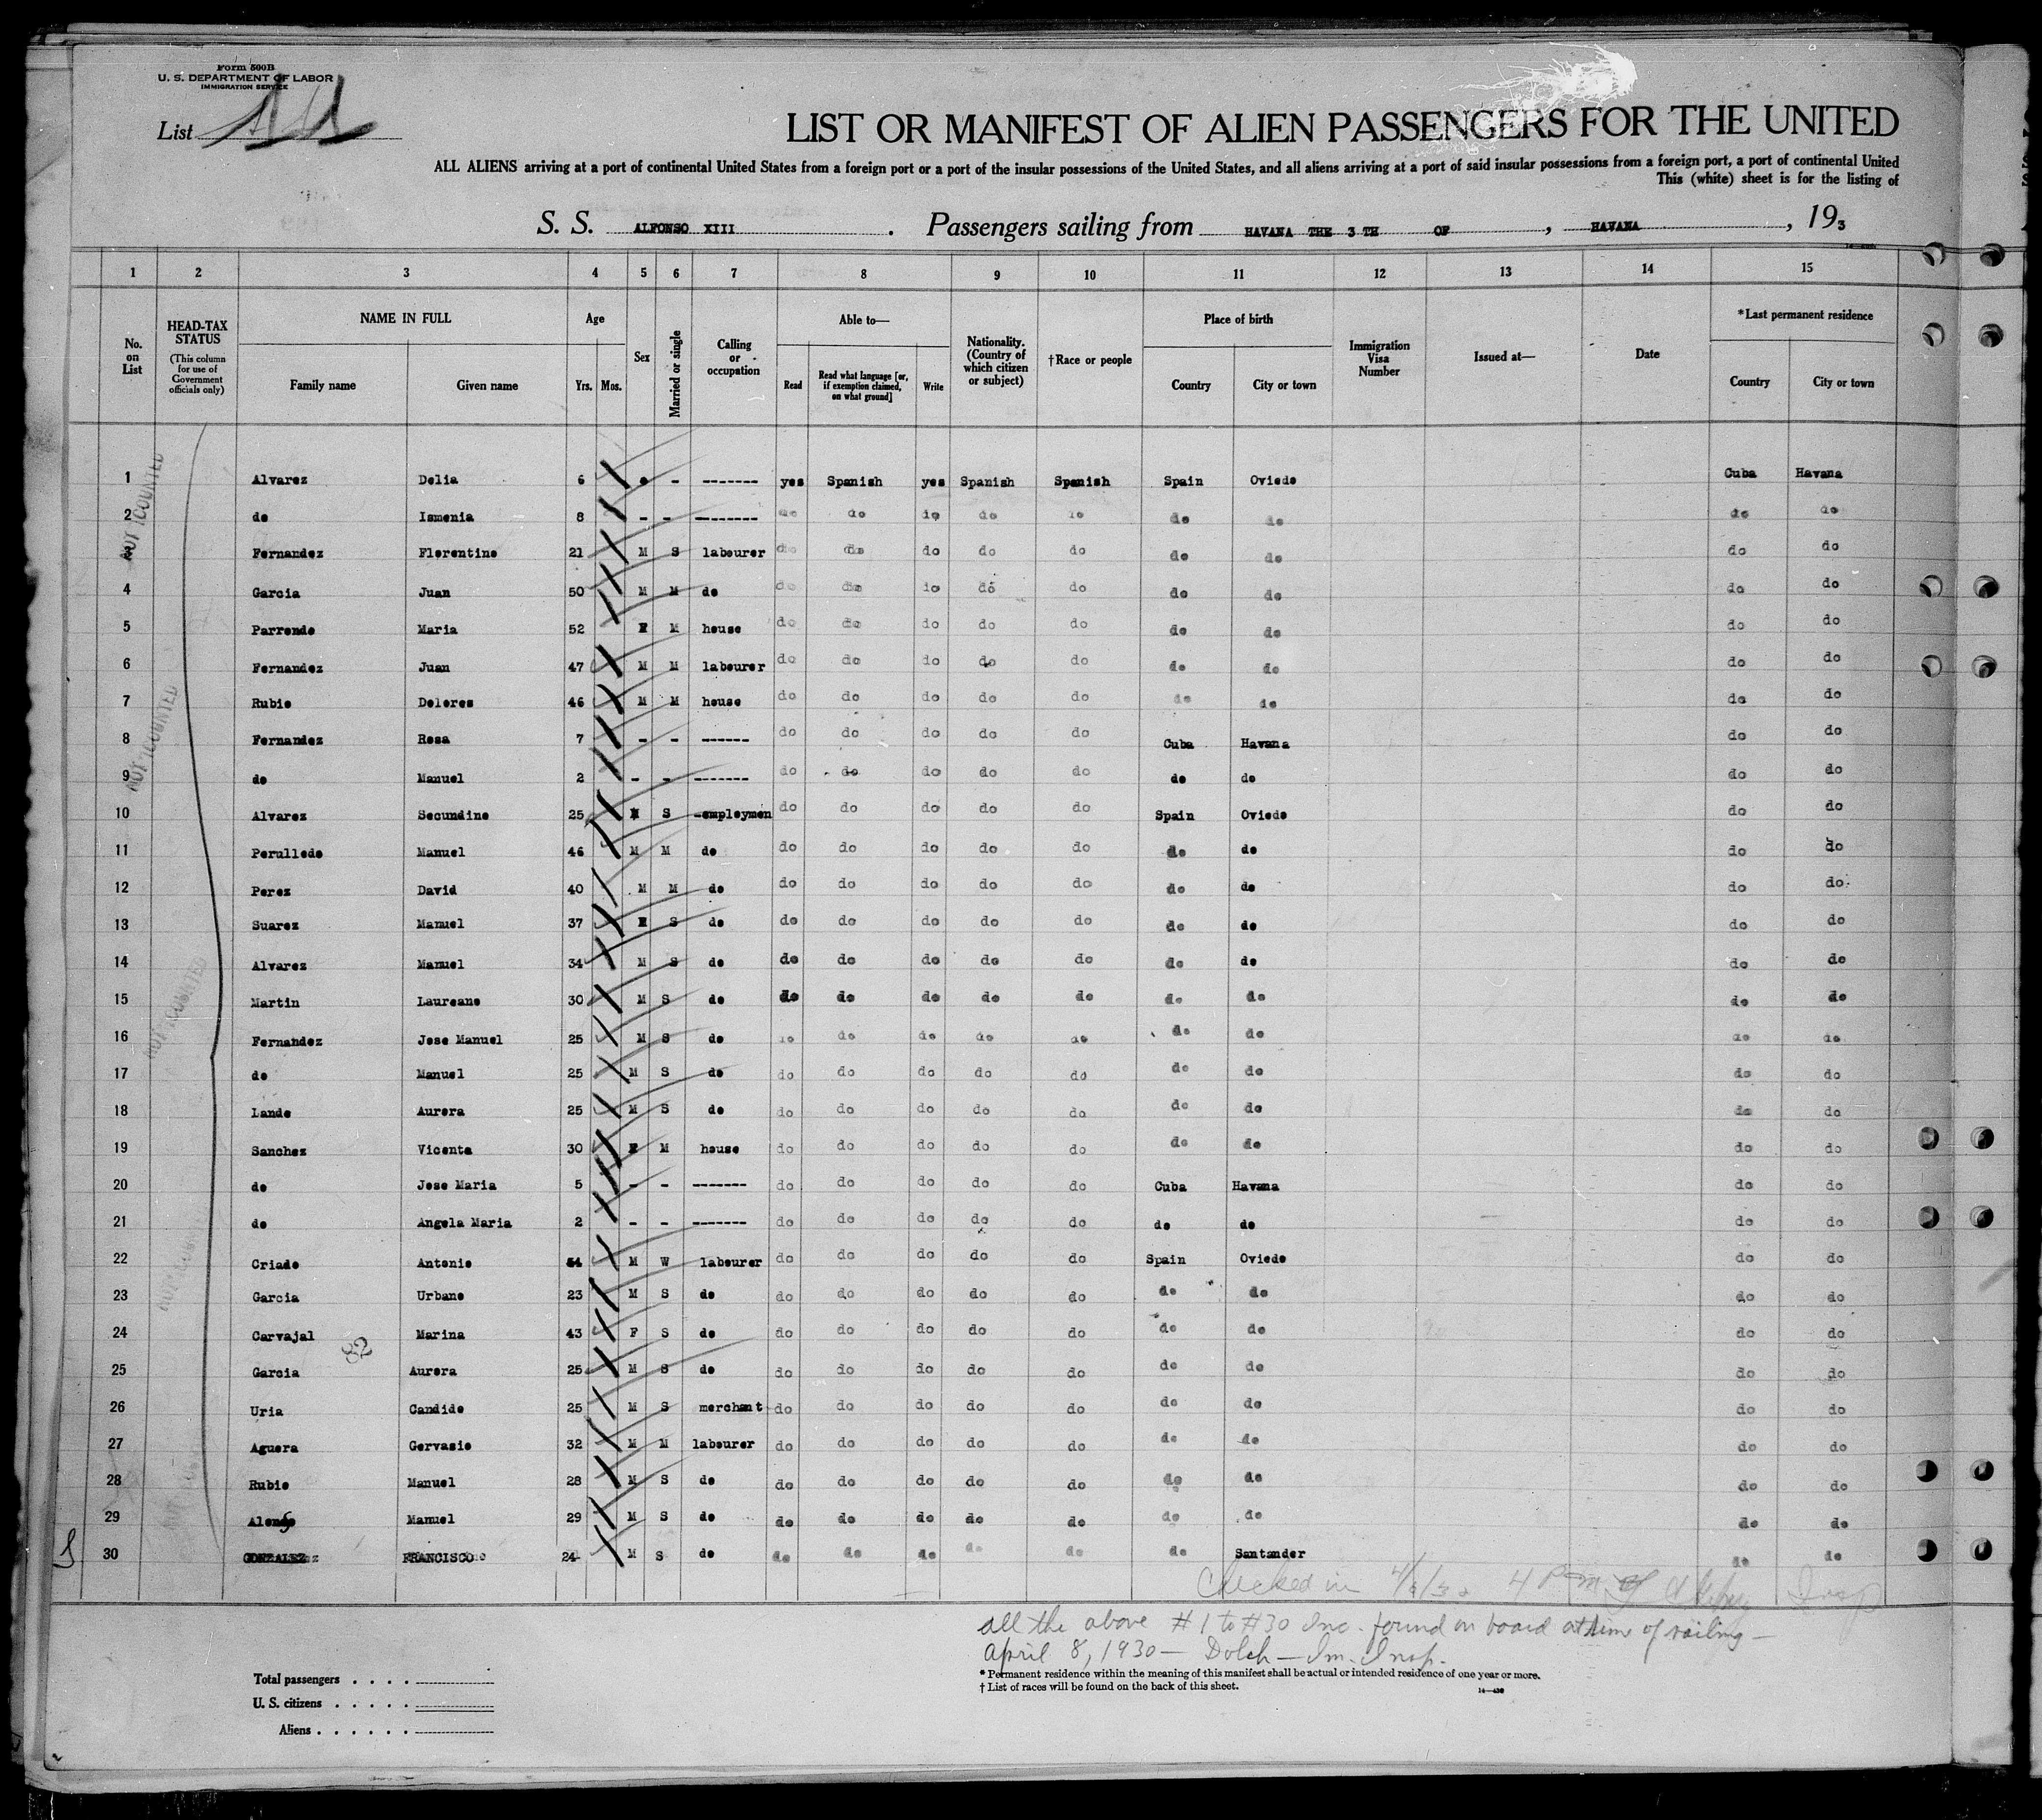 Form 500B
U. S. DEPARTMENT OF LABOR
IMMIGRATION SERVICE
List
LIST OR MANIFEST OF ALIEN PASSENGERS FOR THE UNITED
ALL ALIENS arriving at a port of continental United States from a foreign port or a port of the insular possessions of the United States, and all aliens arriving at a port of said insular possessions from a foreign port, a port of continental United
This (white) sheet is for the listing of
S. S. ALFONSO XIII . Passengers sailing from HAVANA THE 3 TH OF , HAVANA , 193
1 2 3 4 5 6 7 8 9 10 11 12 13 14 15
No. on List HEAD-TAX STATUS (This column for use of Government officials only) NAME IN FULL Family name Given name Age Yrs. Mos. Sex Married or single Calling or occupation Able to— Read Read what language [or, if exemption claimed, on what ground] Write Nationality. (Country of which citizen or subject) †Race or people Place of birth Country City or town Immigration Visa Number Issued at— Date *Last permanent residence Country City or town
1 Alvarez Delia 6 - ------- yes Spanish yes Spanish Spanish Spain Oviedo Cuba Havana
2 do Ismenia 8 - - -------- do do do do do do do do do
3 Fernandez Florentino 21 M S labourer do do do do do do do do do
4 Garcia Juan 50 M M do do do do do do do do do do
5 Parrondo Maria 52 F M house do do do do do do do do do
6 Fernandez Juan 47 M M labourer do do do do do do do do do
7 Rubio Dolores 46 M M house do do do do do do do do do
8 Fernandez Rosa 7 - - ------ do do do do do Cuba Havana do do
9 do Manuel 2 - - ------- do do do do do do do do do
10 Alvarez Secundino 25 M S -employmen do do do do do Spain Oviedo do do
11 Perulledo Manuel 46 M M do do do do do do do do do do
12 Perez David 40 M M do do do do do do do do do do
13 Suarez Manuel 37 S do do do do do do do do do do
14 Alvarez Manuel 34 M S do do do do do do do do do do
15 Martin Laureano 30 M S do do do do do do do do do do
16 Fernandez Jose Manuel 25 M S do do do do do do do do do do
17 do Manuel 25 M S do do do do do do do do do do
18 Lando Aurora 25 M S do do do do do do do do do do
19 Sanchez Vicenta 30 F M house do do do do do do do do do
20 do Jose Maria 5 - - ------- do do do do do Cuba Havana do do
21 do Angela Maria 2 - - ------- do do do do do do do do do
22 Criado Antonio 54 M W labourer do do do do do Spain Oviedo do do
23 Garcia Urbano 23 M S do do do do do do do do do do
24 Carvajal Marina 43 F S do do do do do do do do do do
82
25 Garcia Aurora 25 M S do do do do do do do do do do
26 Uria Candido 25 M S merchant do do do do do do do do do
27 Aguera Gervasio 32 M M labourer do do do do do do do do do
28 Rubio Manuel 28 M S do do do do do do do do do do
29 Manuel 29 M S do do do do do do do do do do
30 GONZALEZ FRANCISCO 24 M S do do do do do do do Santander do do
NOT COUNTED
NOT COUNTED
NOT COUNTED
Checked in 4 Pm Insp
all the above #1 to #30 Inc. found on board at time of sailing —
April 8, 1930 — Dolch — Im. Insp.
* Permanent residence within the meaning of this manifest shall be actual or intended residence of one year or more.
† List of races will be found on the back of this sheet.
Total passengers . . . .
U. S. citizens . . . . .
Aliens . . . . . .